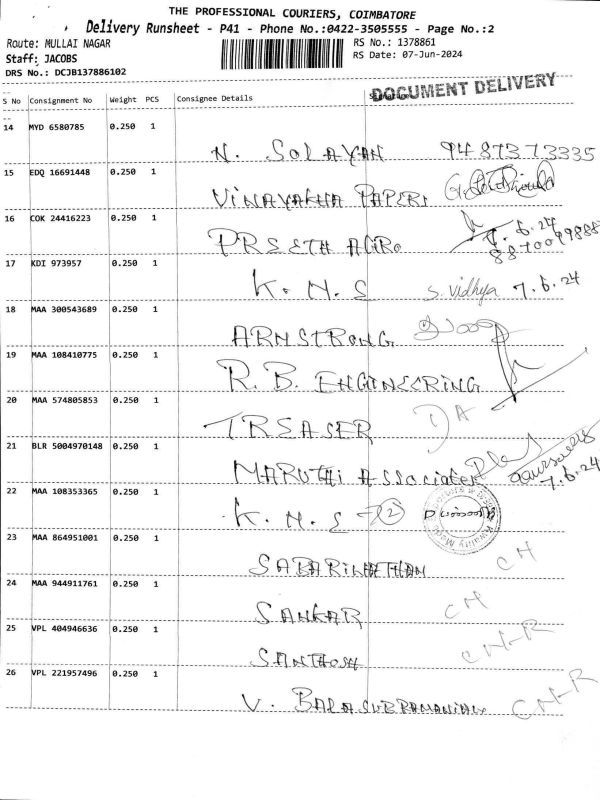 THE PROFESSIONAL COURIERS, COIMBATORE
Delivery Runsheet - P41 - Phone No.:0422-3505555 - Page No.:2
Route: MULLAI NAGAR
RS No.: 1378861
Staff: JACOBS
RS Date: 07-Jun-2024
DRS No.: DCJB137886102
DOCUMENT DELIVERY
S No Consignment No Weight PCS Consignee Details Signature
14 MYD 6580785 0.250 1
N. SOLAYAN 9487373335
15 EDQ 16691448 0.250 1
VINAYAKHA PAPERS
16 COK 24416223 0.250 1
PREETH AGRO 7.6.24
17 KDI 973957 0.250 1
K. N. S S. Vidhya 7.6.24
18 MAA 300543689 0.250 1
ARMSTRONG
19 MAA 108410775 0.250 1
R. B. ENGINEERING
20 MAA 574805853 0.250 1
TREASER
21 BLR 5004970148 0.250 1
MARUTHI ASSociates 7.6.24
22 MAA 108353365 0.250 1
K. N. S - (2)
23 MAA 864951001 0.250 1
SABARINATHAN CH
24 MAA 944911761 0.250 1
SANKAR CH
25 VPL 404946636 0.250 1
SANTHOSH CH-R
26 VPL 221957496 0.250 1
V. BALASUBRAMANIAN CH-R